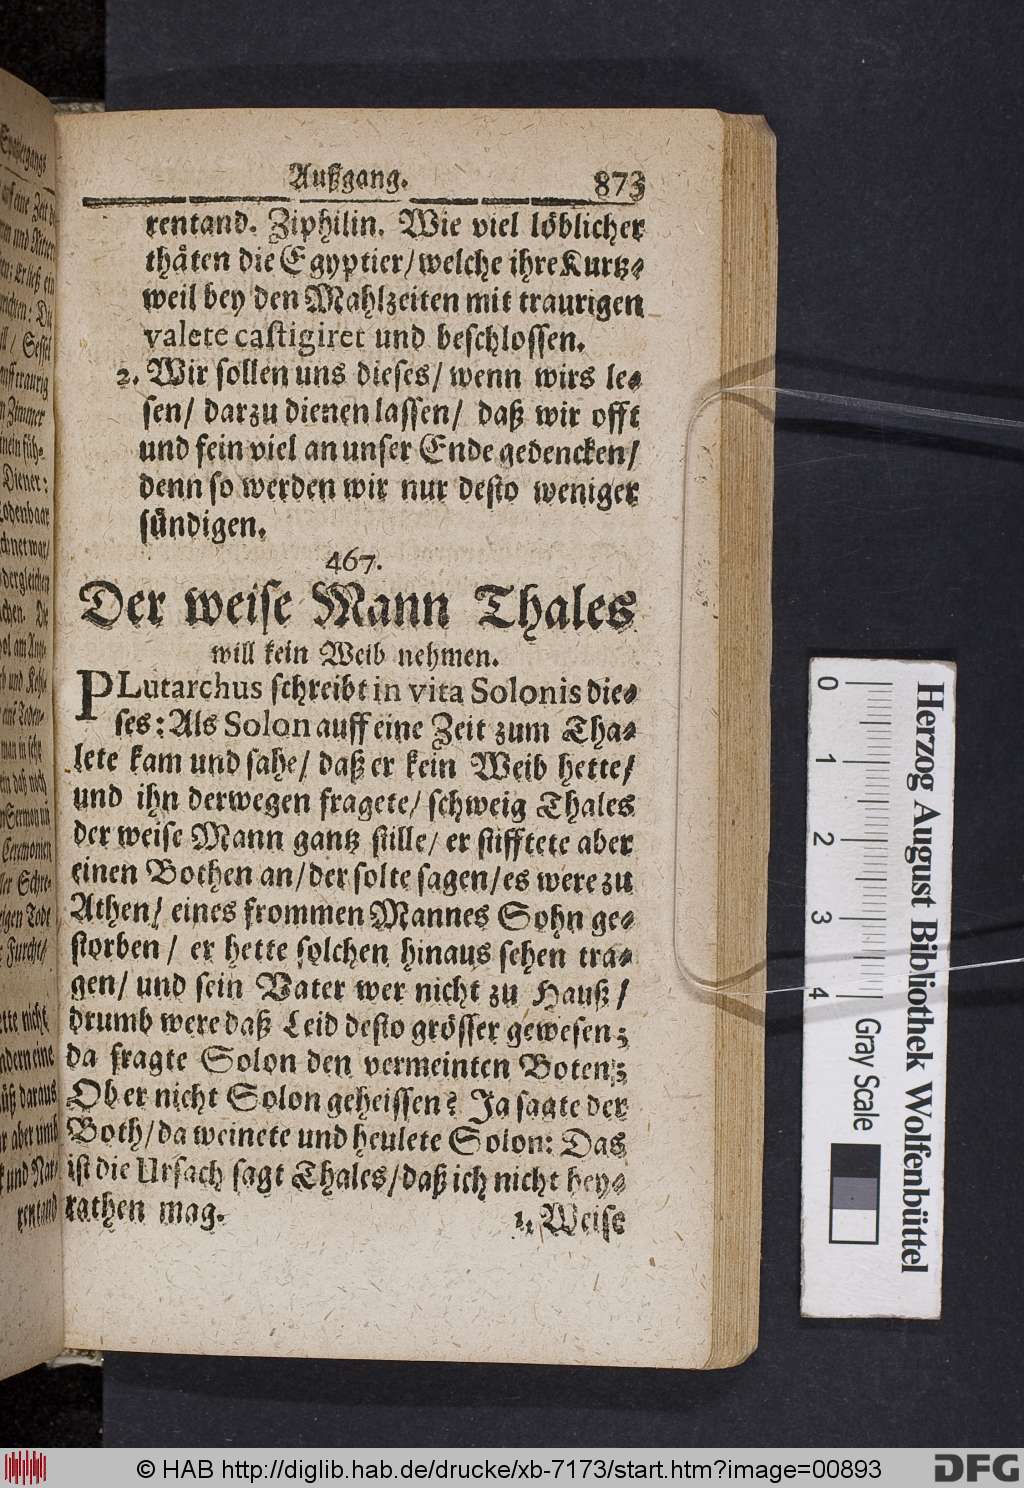 Außgang. 873
rentand. Ziphilin. Wie viel löblicher
thäten die Egyptier/welche ihre Kurtz-
weil bey den Mahlzeiten mit traurigen
valete castigiret und beschlossen.
2. Wir sollen uns dieses/ wenn wirs le-
sen/ darzu dienen lassen/ daß wir offt
und fein viel an unser Ende gedencken/
denn so werden wir nur desto weniger
sündigen.
467.
Der weise Mann Thales
will kein Weib nehmen.
PLutarchus schreibt in vita Solonis die-
ses: Als Solon auff eine Zeit zum Tha-
lete kam und sahe/ daß er kein Weib hette/
und ihn derwegen fragete/ schweig Thales
der weise Mann gantz stille/ er stifftete aber
einen Bothen an/der solte sagen/es were zu
Athen/ eines frommen Mannes Sohn ge-
storben/ er hette solchen hinaus sehen tra-
gen/ und sein Vater wer nicht zu Hauß/
drumb were daß Leid desto grösser gewesen;
da fragte Solon den vermeinten Boten;
Ob er nicht Solon geheissen? Ja sagte der
Both/da weinete und heulete Solon: Das
ist die Ursach sagt Thales/daß ich nicht hey-
rathen mag.
1. Weise
Spatziergangs
auff eine Zeit
Er ließ ein
Sessel
traurig
Zimmer
Diener:
dergleichen
Ceremonien
Todt
Furcht/
nicht
eine
daraus
aber umb
und Nar-
rentand
0 1 2 3 4
Gray Scale
Herzog August Bibliothek Wolfenbüttel
© HAB http://diglib.hab.de/drucke/xb-7173/start.htm?image=00893
DFG